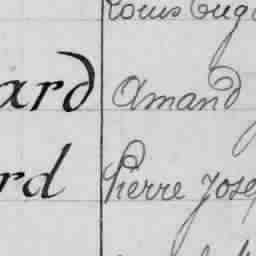 Louis Eug
ard Amand
rd Pierre Jose